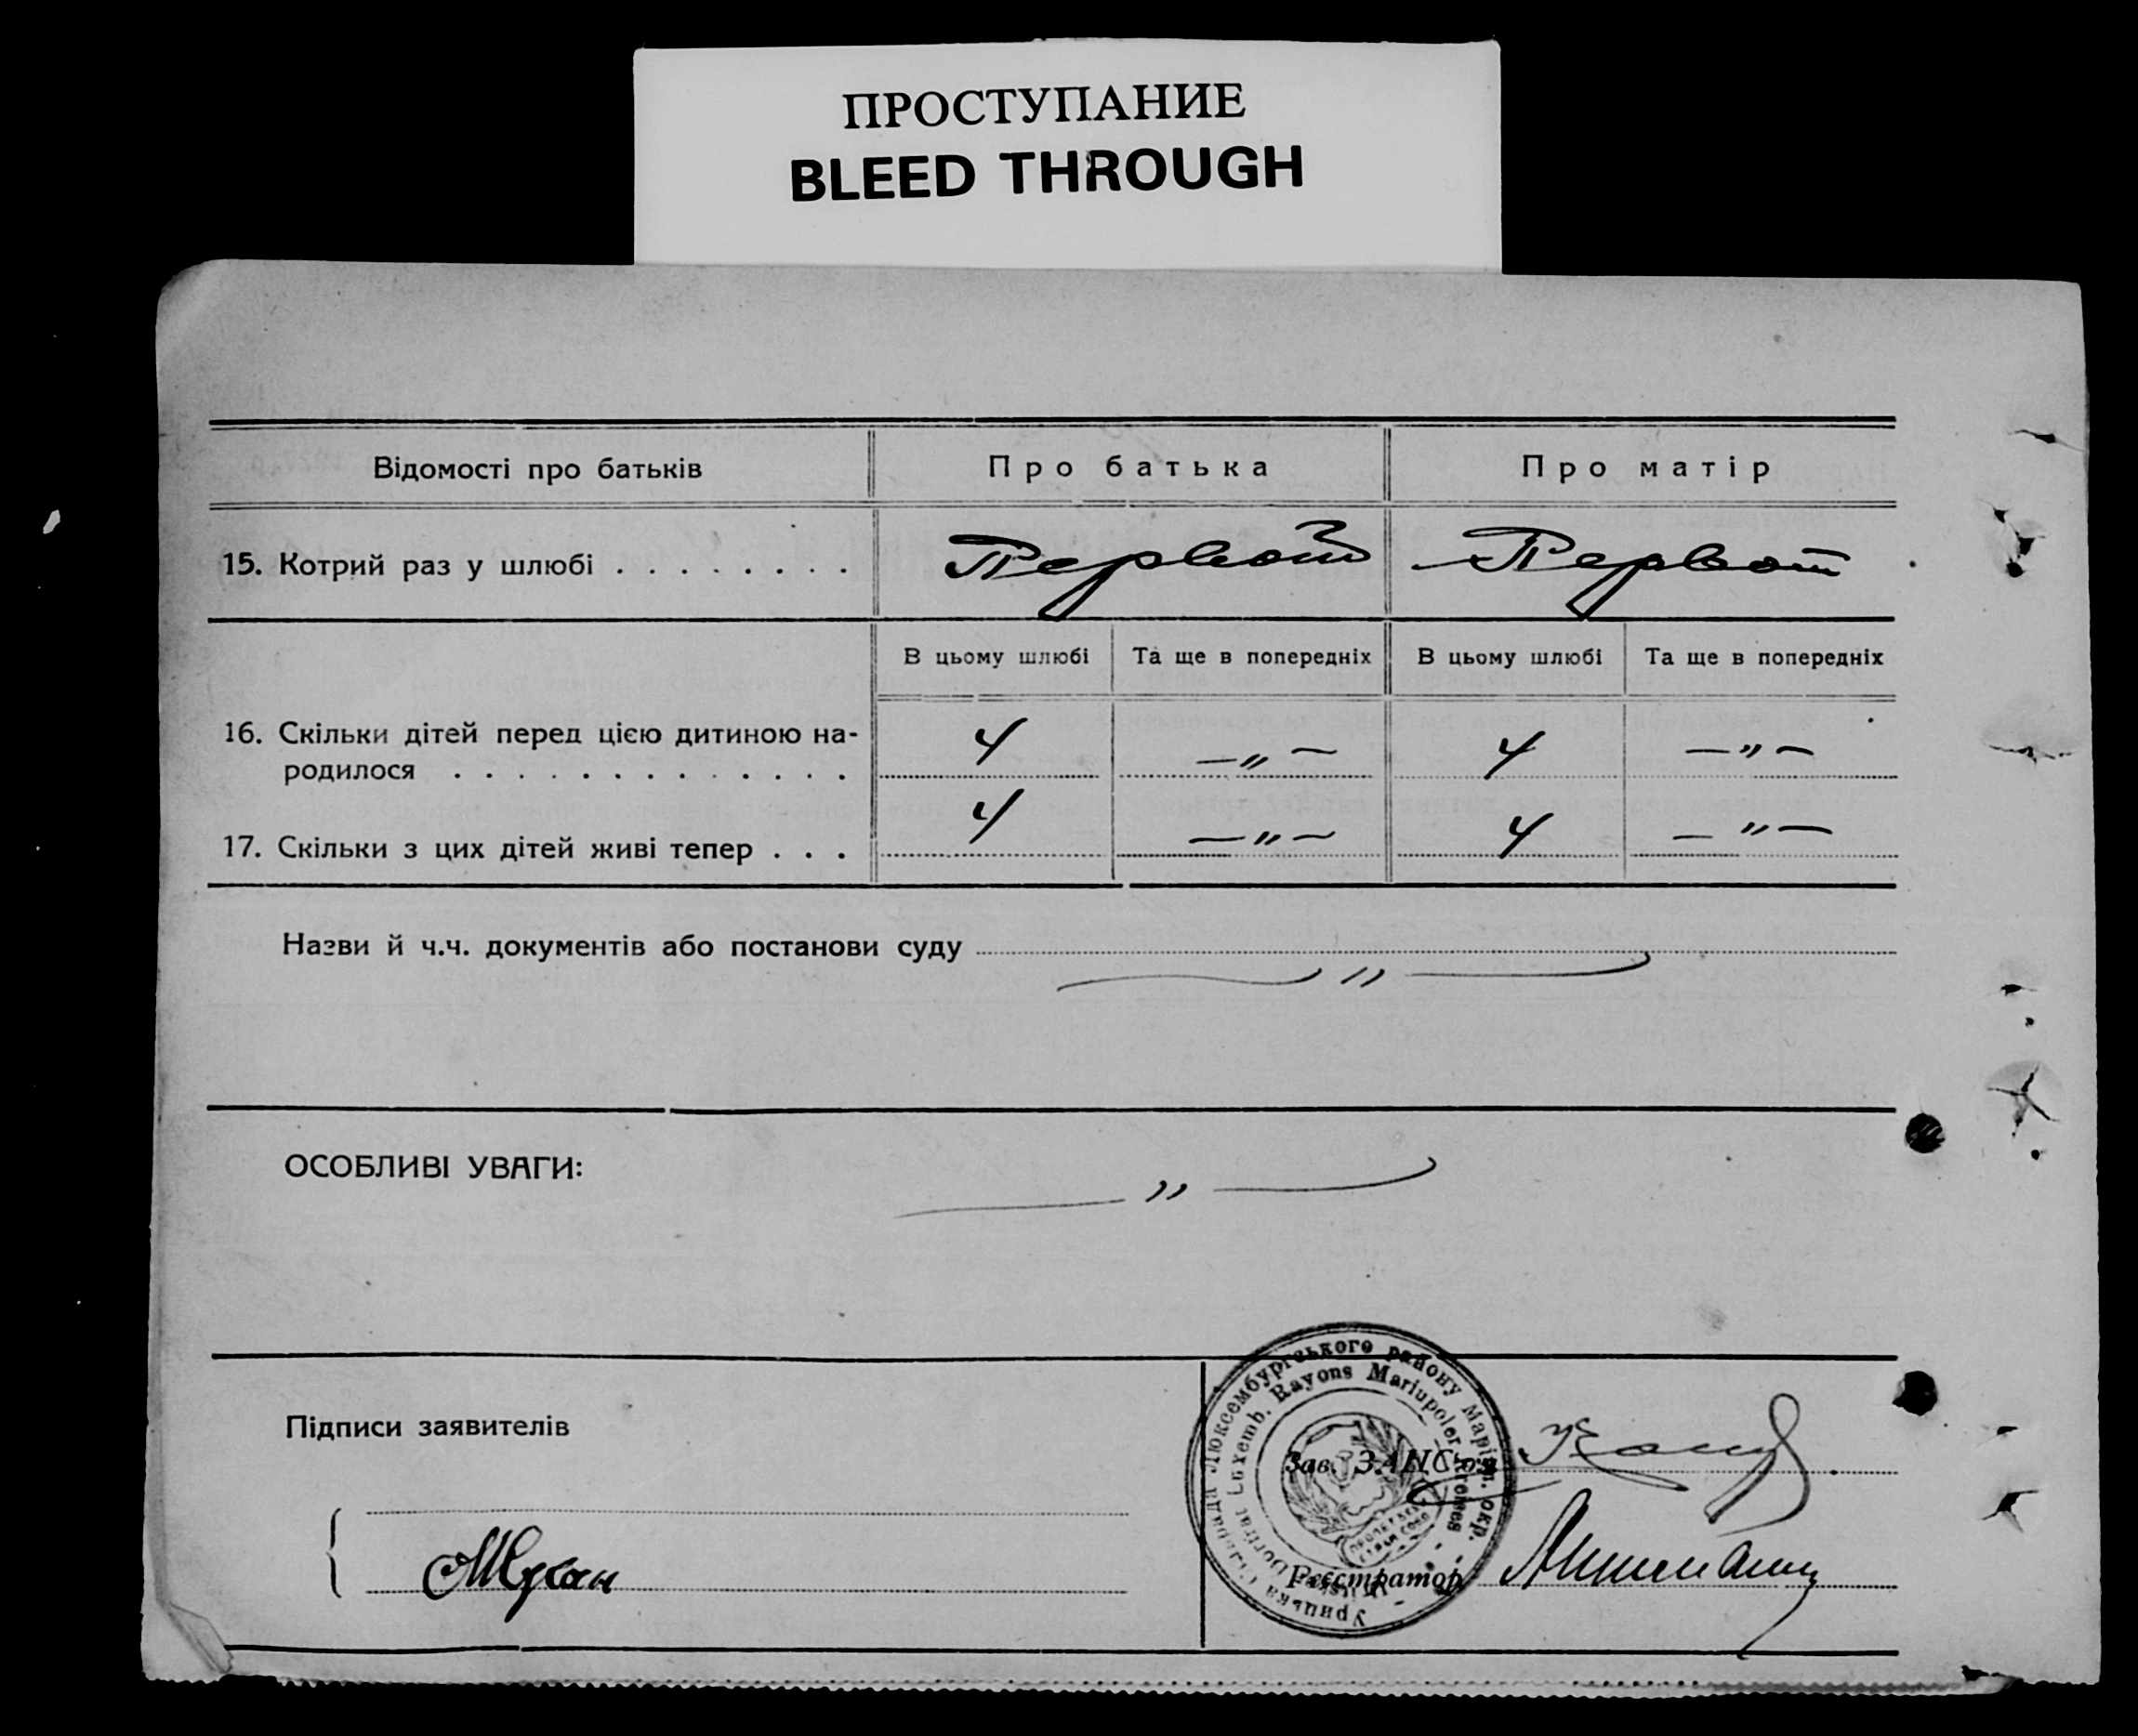 ПРОСТУПАНИЕ
BLEED THROUGH
Відомості про батьків Про батька Про матір
15. Котрий раз у шлюбі . . . . . . . . Первый Первот
В цьому шлюбі Та ще в попередніх В цьому шлюбі Та ще в попередніх
16. Скільки дітей перед цією дитиною на-
родилося . . . . . . . . . . . . . 4 —„— 4 —„—
17. Скільки з цих дітей живі тепер . . . 4 —„— 4 —„—
Назви й ч.ч. документів або постанови суду
— „ —
ОСОБЛИВІ УВАГИ:
— „ —
Люксембургського району Маріюп. окр.
Luxemb. Rayons Mariupoler Kreises
Підписи заявителів
Зав. ЗАГС'ом
Реєстратор
Урицька Сільрада